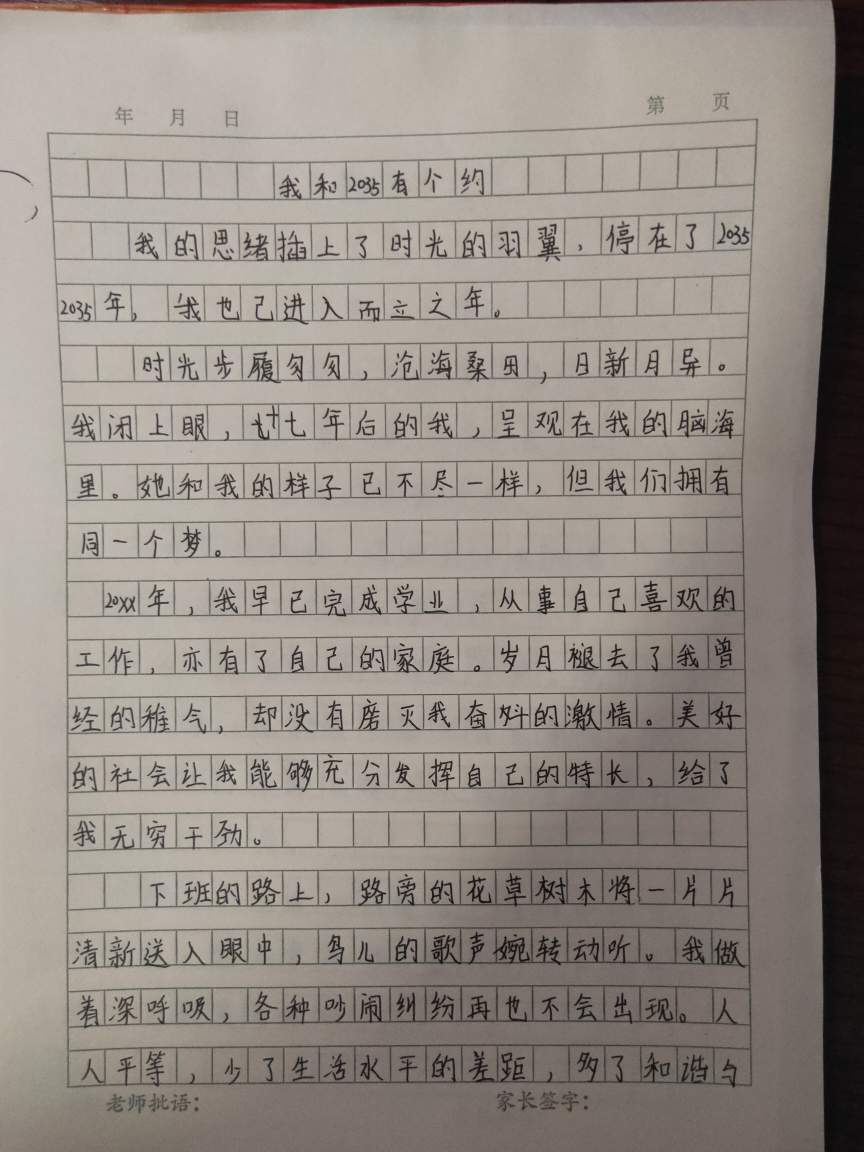 年 月 日 第 页
我和2035有个约
我的思绪插上了时光的羽翼，停在了2035
2035年，我也己进入而立之年。
时光步履匆匆，沧海桑田，日新月异。
我闭上眼，十七年后的我，呈观在我的脑海
里。她和我的样子已不尽一样，但我们拥有
同一个梦。
20XX年，我早已完成学业，从事自己喜欢的
工作，亦有了自己的家庭。岁月褪去了我曾
经的稚气，却没有磨灭我奋斗的激情。美好
的社会让我能够充分发挥自己的特长，给了
我无穷干劲。
下班的路上，路旁的花草树木将一片片
清新送入眼中，鸟儿的歌声婉转动听。我做
着深呼吸，各种吵闹纠纷再也不会出现。人
人平等，少了生活水平的差距，多了和谐与
老师批语： 家长签字：